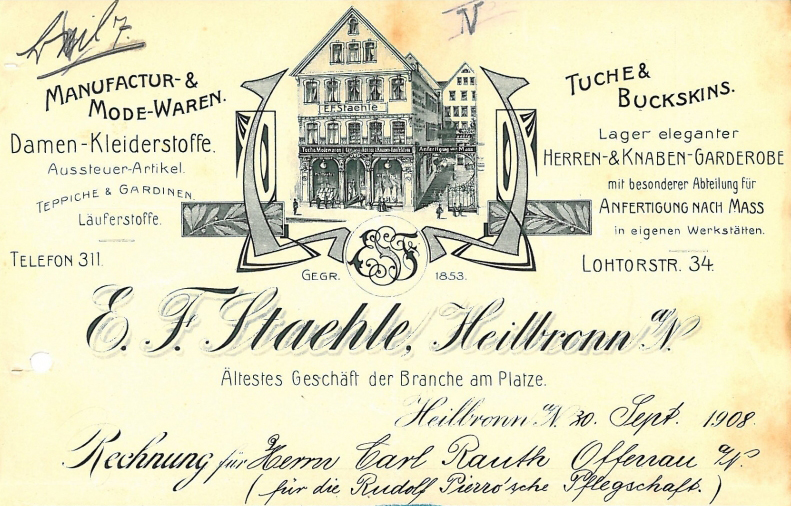 IV
MANUFACTUR- &
MODE-WAREN.
Damen-Kleiderstoffe.
Aussteuer-Artikel.
TEPPICHE & GARDINEN
Läuferstoffe.
TELEFON 311.
E.F. Staehle
Anfertigung nach Mass
GEGR. 1853.
TUCHE &
BUCKSKINS.
Lager eleganter
HERREN- & KNABEN-GARDEROBE
mit besonderer Abteilung für
ANFERTIGUNG NACH MASS
in eigenen Werkstätten.
LOHTORSTR. 34.
E. F. Staehle, Heilbronn a/N.
Ältestes Geschäft der Branche am Platze.
Heilbronn a/N. 30. Sept. 1908.
Rechnung für Herrn Carl Rauth Offenau a/N.
(für die Rudolf Pierro'sche Pflegschaft.)